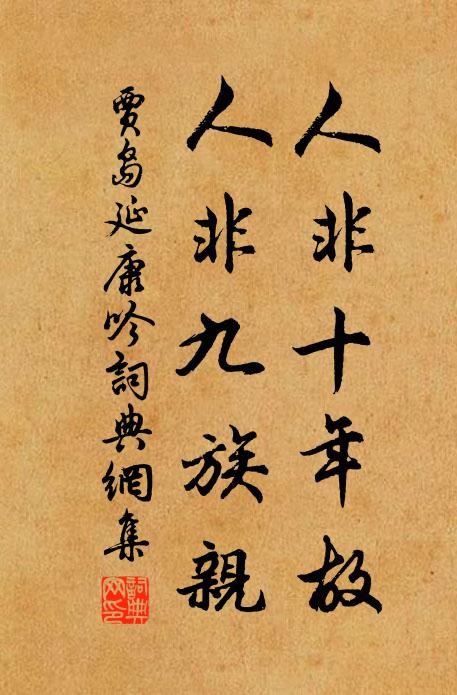 人非十年故
人非九族親
賈島延康吟詞典網集
詞典
网印